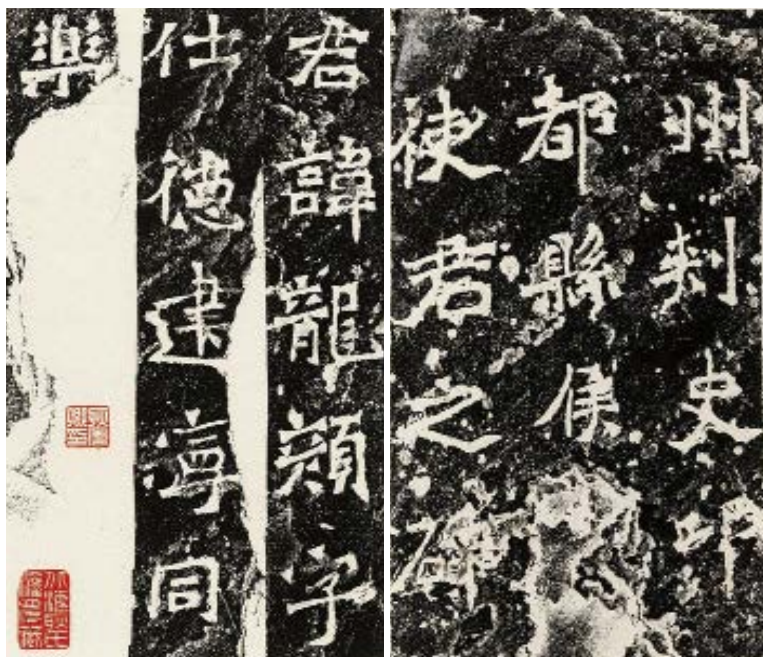 州刺史邛
都縣侯
使君之碑
君諱龍顏字
仕德建寧同
樂